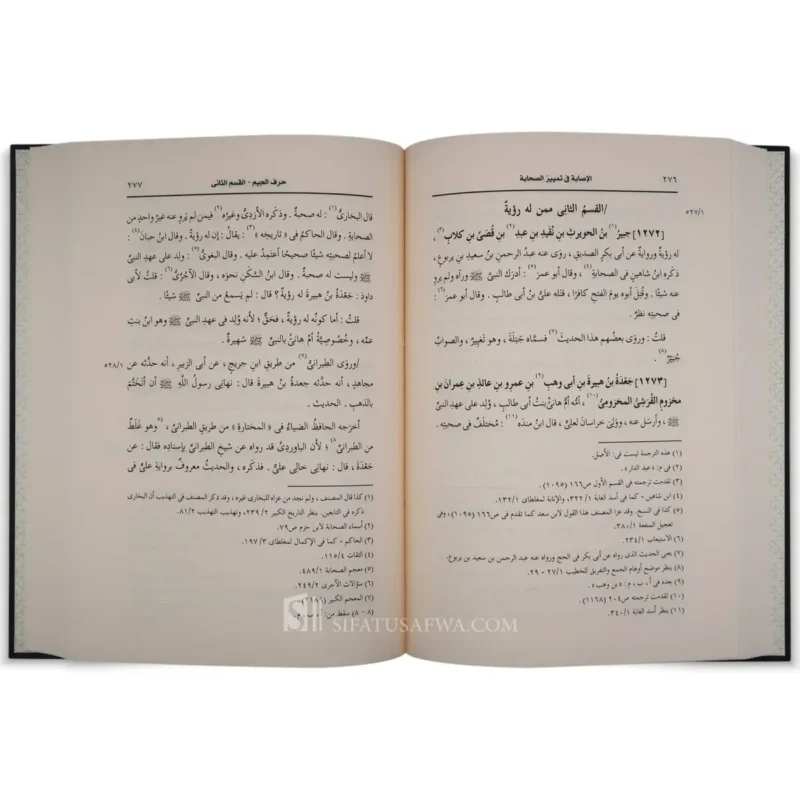 ٢٧٦
الإصابة فى تمييز الصحابة
٥٢٧/١
/القسمُ الثانى ممن له رؤيةٌ
[١٢٧٢] جبيرُ(١) بنُ الحويرثِ بنِ نُقَيدِ بنِ عبدِ(٢) بنِ قُصَىِّ بنِ كلابٍ(٣)،
له رؤيةٌ وروايةٌ عن أبى بكرٍ الصديقِ، روَى عنه عبدُ الرحمنِ بنُ سعيدِ بنِ يربوعٍ،
ذكَره ابنُ شاهينَ فى الصحابةِ(٤)، وقال أبو عمرَ(٥): أدرَك النبىَّ ﷺ ورآه ولم يروِ
عنه شيئًا. وقُتِل أبوه يومَ الفتحِ كافرًا، قتَله علىُّ بنُ أبى طالبٍ. وقال أبو عمرَ(٦):
فى صحبتِه نظرٌ.
قلتُ: وروَى بعضُهم هذا الحديثَ(٧) فسمَّاه جَبَلَةَ، وهو تَغْيِيرٌ، والصوابُ
جُبيرٌ(٨).
[١٢٧٣] جَعْدَةُ بنُ هُبيرةَ بنِ أبى وهبِ(٩) بنِ عمرِو بنِ عائذِ بنِ عمرانَ بنِ
مخزومٍ القُرَشِىُّ المخزومىُّ(١٠)، أمُّه أمُّ هانئٍ بنتُ أبى طالبٍ، وُلد على عهدِ النبىِّ
ﷺ، وأرسَل عنه، ووَلِىَ خراسانَ لعلىٍّ، قال ابنُ منده(١١): مُختلَفٌ فى صحبتِه.
(١) هذه الترجمة ليست فى: الأصل.
(٢) فى م: «عبد الدار».
(٣) تقدمت ترجمته فى القسم الأول ص١٦٦ (١٠٩٥).
(٤) ابن شاهين - كما فى أسد الغابة ٣٢٢/١، والإنابة لمغلطاى ١٣٢/١.
(٥) كذا فى النسخ. وقد عزا المصنف هذا القول لابن سعد كما تقدم فى ص١٦٦ (١٠٩٥)، وفى
تعجيل المنفعة ٣٨٠/١.
(٦) الاستيعاب ٢٣٤/١.
(٧) يعنى الحديث الذى رواه عن أبى بكر فى الحج ورواه عنه عبد الرحمن بن سعيد بن يربوع.
(٨) ينظر موضح أوهام الجمع والتفريق للخطيب ٢٧/١ - ٢٩.
(٩) بعده فى أ، ب، م: «بن وهب».
(١٠) تقدمت ترجمته ص٢٠٤ (١١٦٨).
(١١) ينظر أسد الغابة ٣٤٠/١.
حرف الجيم - القسم الثانى
٢٧٧
قال البخارىُّ(١): له صحبةٌ. وذكَره الأزدىُّ وغيرُه(٢) فيمن لم يَروِ عنه غيرُ واحدٍ من
الصحابةِ. وقال الحاكمُ فى «تاريخِه»(٣): يقالُ: إن له رؤيةً. وقال ابنُ حبانَ(٤):
لا أعلمُ لصحبتِه شيئًا صحيحًا أعتمِدُ عليه. وقال البغوىُّ(٥): وُلد على عهدِ النبىِّ
ﷺ وليست له صحبةٌ. وقال ابنُ السَّكَنِ نحوَه، وقال الآجُرِّىُّ(٦): قلتُ لأبى
داودَ: جَعْدَةُ بنُ هبيرةَ له رؤيةٌ؟ قال: لم يَسمعْ من النبىِّ ﷺ شيئًا.
قلتُ: أما كونُه له رؤيةٌ، فحَقٌّ؛ لأنه وُلد فى عهدِ النبىِّ ﷺ وهو ابنُ بنتِ
عمِّه، وخُصُوصِيَّةُ أمِّ هانئٍ بالنبىِّ ﷺ شهيرةٌ.
٥٢٨/١
/وروَى الطبرانىُّ(٧) من طريقِ ابنِ جريجٍ، عن أبى الزبيرِ، أنه حدَّثه عن
مجاهدٍ، أنه حدَّثه جعدةُ بنُ هبيرةَ قال: نهانِى رسولُ اللَّهِ ﷺ أن أتَختَّمَ
بالذهبِ. الحديث.
أخرَجه الحافظُ الضياءُ فى «المختارةِ» من طريقِ الطبرانىِّ، (٨)وهو غَلَطٌ
من الطبرانىِّ(٨)؛ لأن الباوردِىَّ قد رواه عن شيخِ الطبرانىِّ بإسنادِه فقال: عن
جَعْدَةَ، قال: نهانِى خالى علىٌّ. فذكَره، والحديثُ معروفٌ بروايةِ علىٍّ فى
(١) كذا قال المصنف، ولم نجد من عزاه للبخارى غيره، وقد ذكر المصنف فى التهذيب أن البخارى
ذكره فى التابعين. ينظر التاريخ الكبير ٢٣٩/٢، وتهذيب التهذيب ٨١/٢.
(٢) أسماء الصحابة لابن حزم ص٧٩.
(٣) الحاكم - كما فى الإكمال لمغلطاى ١٩٧/٣.
(٤) الثقات ١١٥/٤.
(٥) معجم الصحابة ٤٨٩/١.
(٦) سؤالات الآجرى ٢٤٩/٢.
(٧) المعجم الكبير (٢١٨٦).
(٨ - ٨) سقط من: أ، ب، م.
SIFATUSAFWA.COM